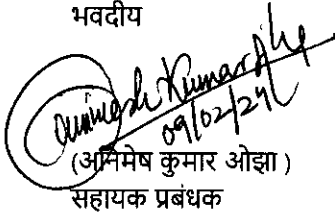 भवदीय
Animesh Kumar Ojha
09/02/24
(अनिमेष कुमार ओझा )
सहायक प्रबंधक